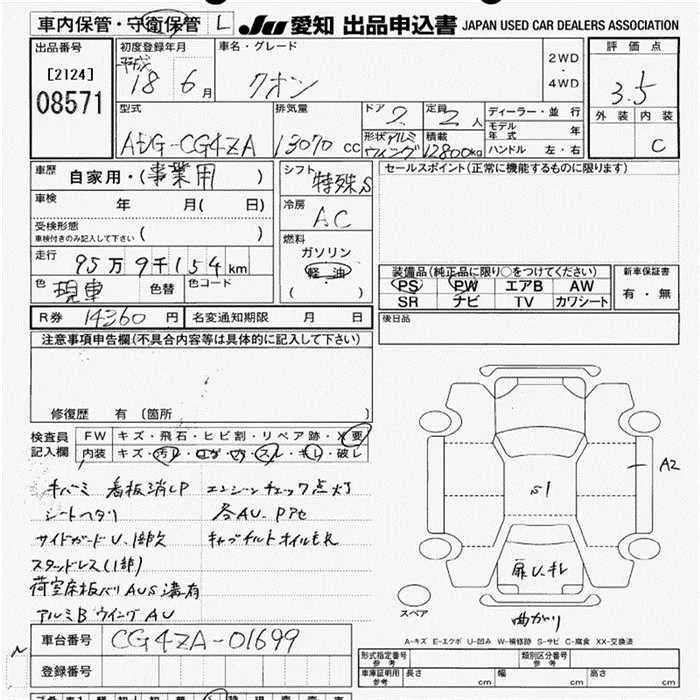 車内保管・守衛保管 L
JU 愛知 出品申込書 JAPAN USED CAR DEALERS ASSOCIATION
出品番号
[2124]
08571
初度登録年月
平成
18 6月
車名・グレード
クオン
2WD
・
4WD
評価点
3.5
外装 内装
C
型式
ADG-CG4ZA
排気量
13070 cc
ドア 2
定員 2人
形状 アルミ
ウィング
積載
12800kg
ディーラー・並行
モデル
年式 年
ハンドル 左・右
車歴
自家用・(事業用)
車検 年 月( 日)
受検形態
車検付きのみ記入して下さい ( )
走行
95万9千154km
色 現車 色替 色コード
シフト
特殊S
冷房
AC
燃料
ガソリン
軽油
( )
セールスポイント(正常に機能するものに限ります)
装備品(純正品に限り○をつけてください)
PS PW エアB AW
SR ナビ TV カワシート
新車保証書
有・無
後日品
R券 14360円 名変通知期限 月 日
注意事項申告欄(不具合内容等は具体的に記入して下さい)
修復歴 有(箇所 )
検査員
記入欄
FW キズ・飛石・ヒビ割・リペア跡・X要
内装 キズ・汚レ・コゲ・穴・スレ・キレ・破レ
キバミ 看板消しP エンジンチェック点灯
シートヘタリ 各AU、Pアセ
サイドガードU、1部欠 キャブチルトオイルもれ
スタッドレス(1部)
荷室床板バリ AUS溝有
アルミB ウイングAU
A2
S1
扉U、キレ
曲がり
スペア
A-キズ E-エクボ U-凹み W-補修跡 S-サビ C-腐食 XX-交換済
車台番号 CG4ZA-01699
登録番号
形式指定番号
参考
類別区分番号
参考
車庫証明用
参考
長さ cm 幅 cm 高さ cm